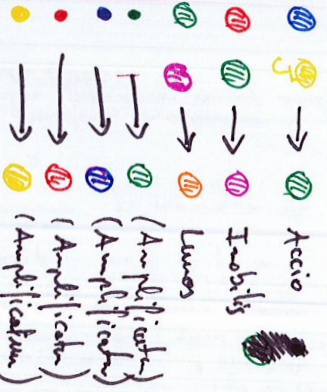 Accio
Imobilis
Lumos
(Amplificatum)
(Amplificatum)
(Amplificatum)
(Amplificatum)